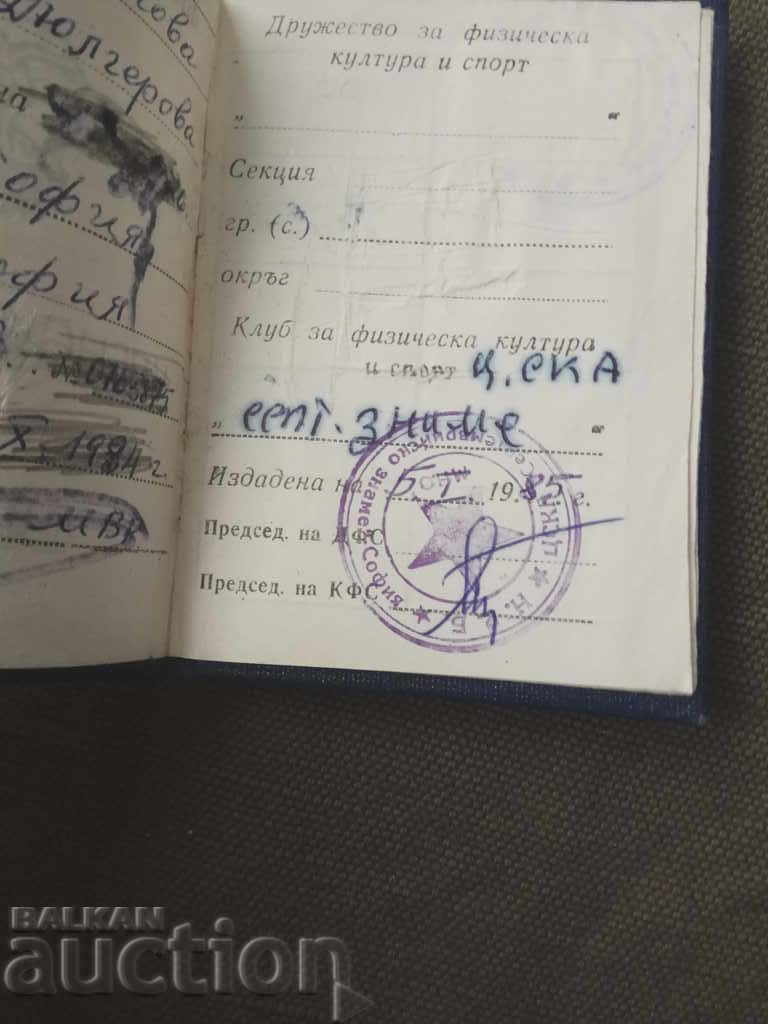 сова
Дюлгерова
на
София
София
№ 010
X. 1984 г.
МВР
Дружество за физическа
култура и спорт
„ “
Секция
гр. (с.)
окръг
Клуб за физическа култура
и спорт Ц.СКА
„ септ. знаме “
Издадена на 5. I. 1985 г.
Председ. на ДФС
Председ. на КФС
Септемврийско знаме ★ София ★
ЦСКА
BALKAN
auction